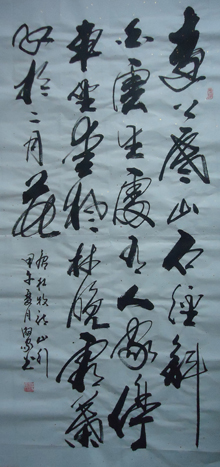 遠上寒山石徑斜
白雲生處有人家停
車坐愛楓林晚霜葉
紅於二月花
唐杜牧詩山行
甲午月书